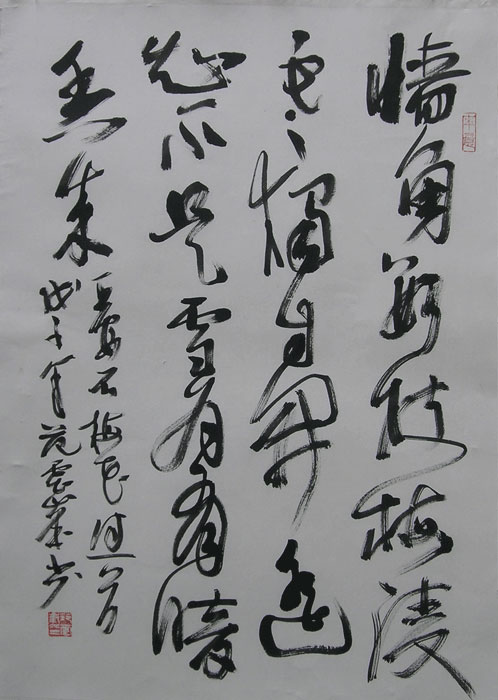 墙角数枝梅凌
寒獨自開遥
知不是雪为有暗
香来
王安石梅花诗一首
戊子年范雲峯书